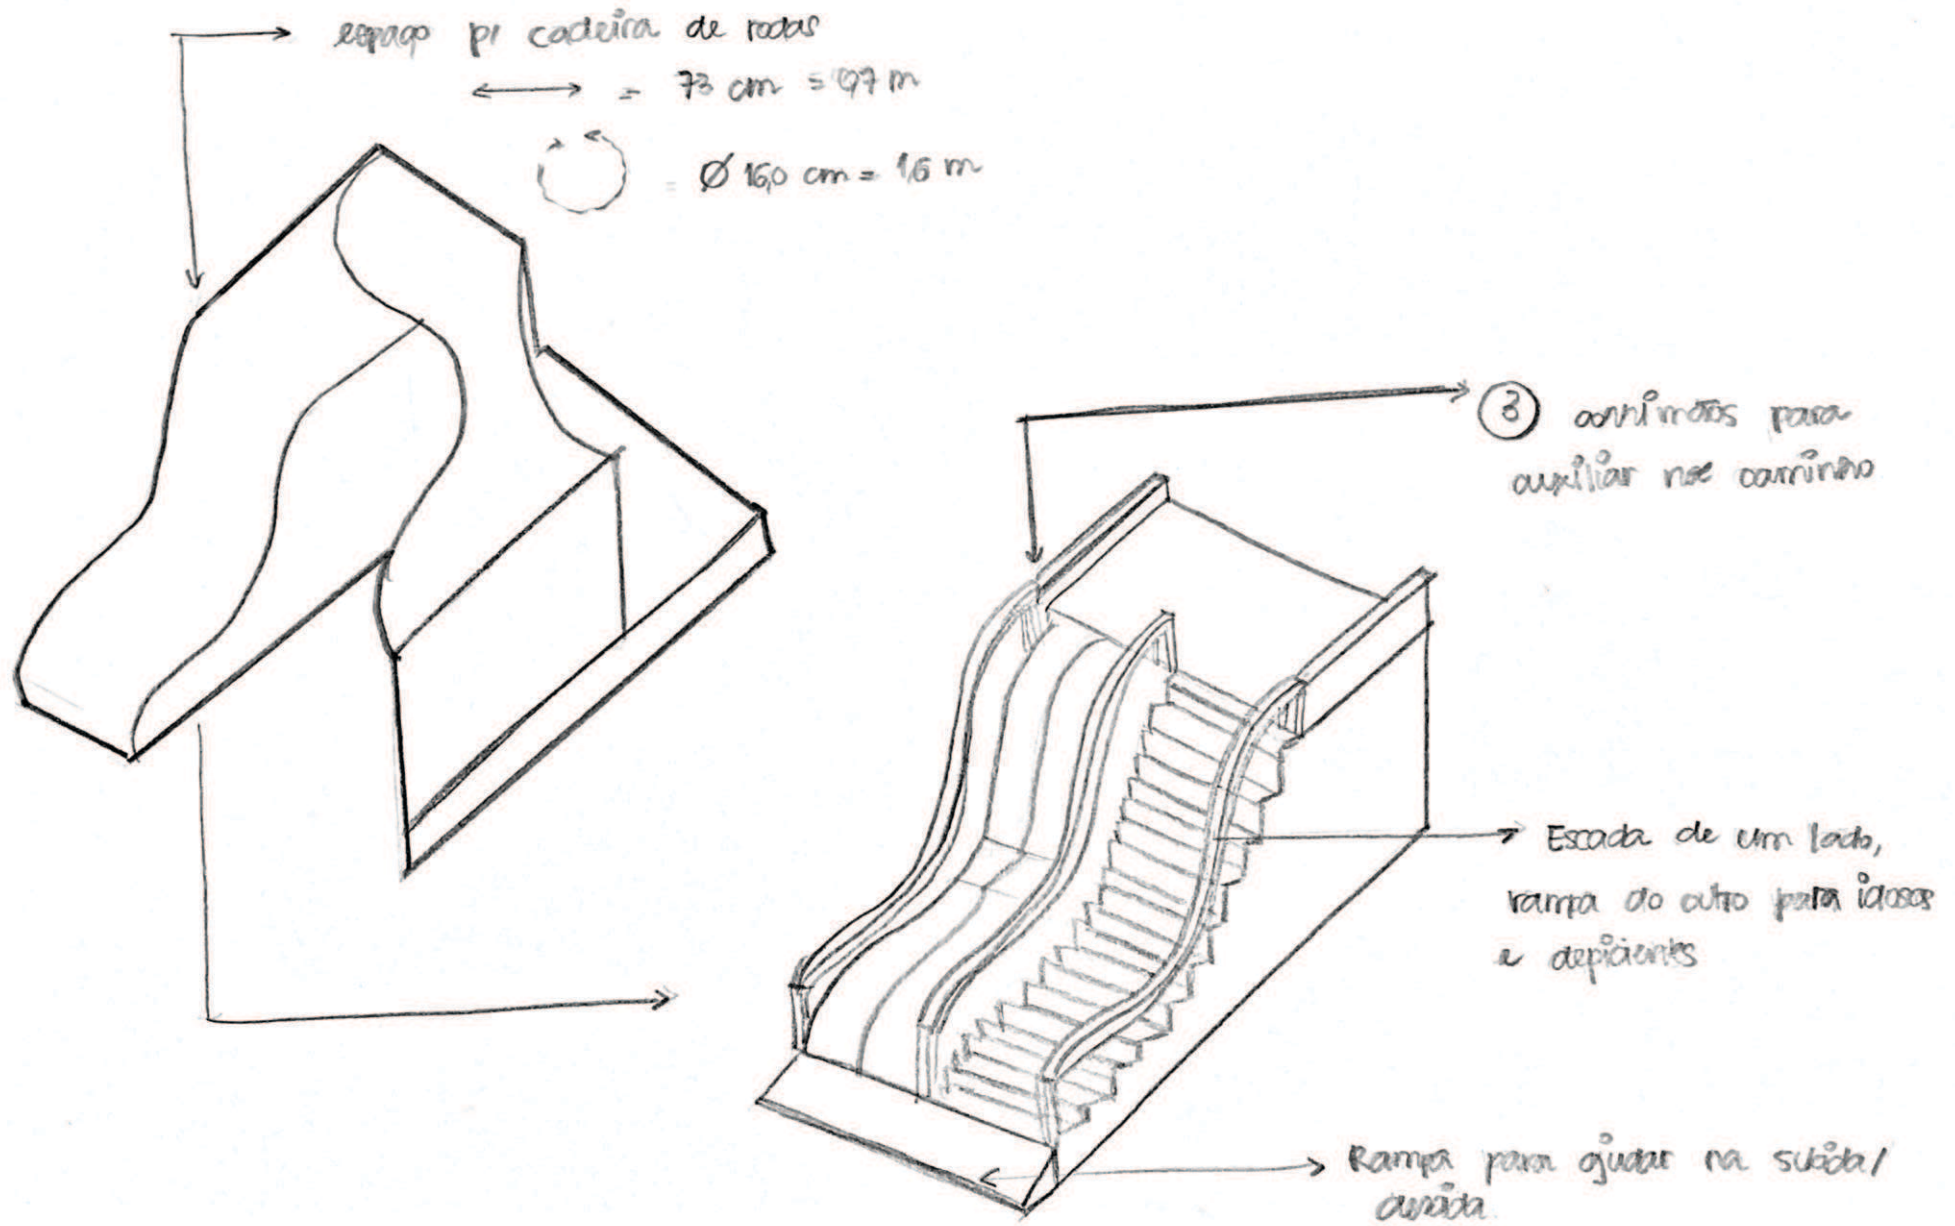 espaço p/ cadeira de rodas
= 73 cm = 0,7 m
= Ø 16,0 cm = 1,6 m
3 corrimãos para
auxiliar nos caminho
Escada de um lado,
rampa do outro para idosos
e deficientes
Rampa para ajudar na subida/
descida